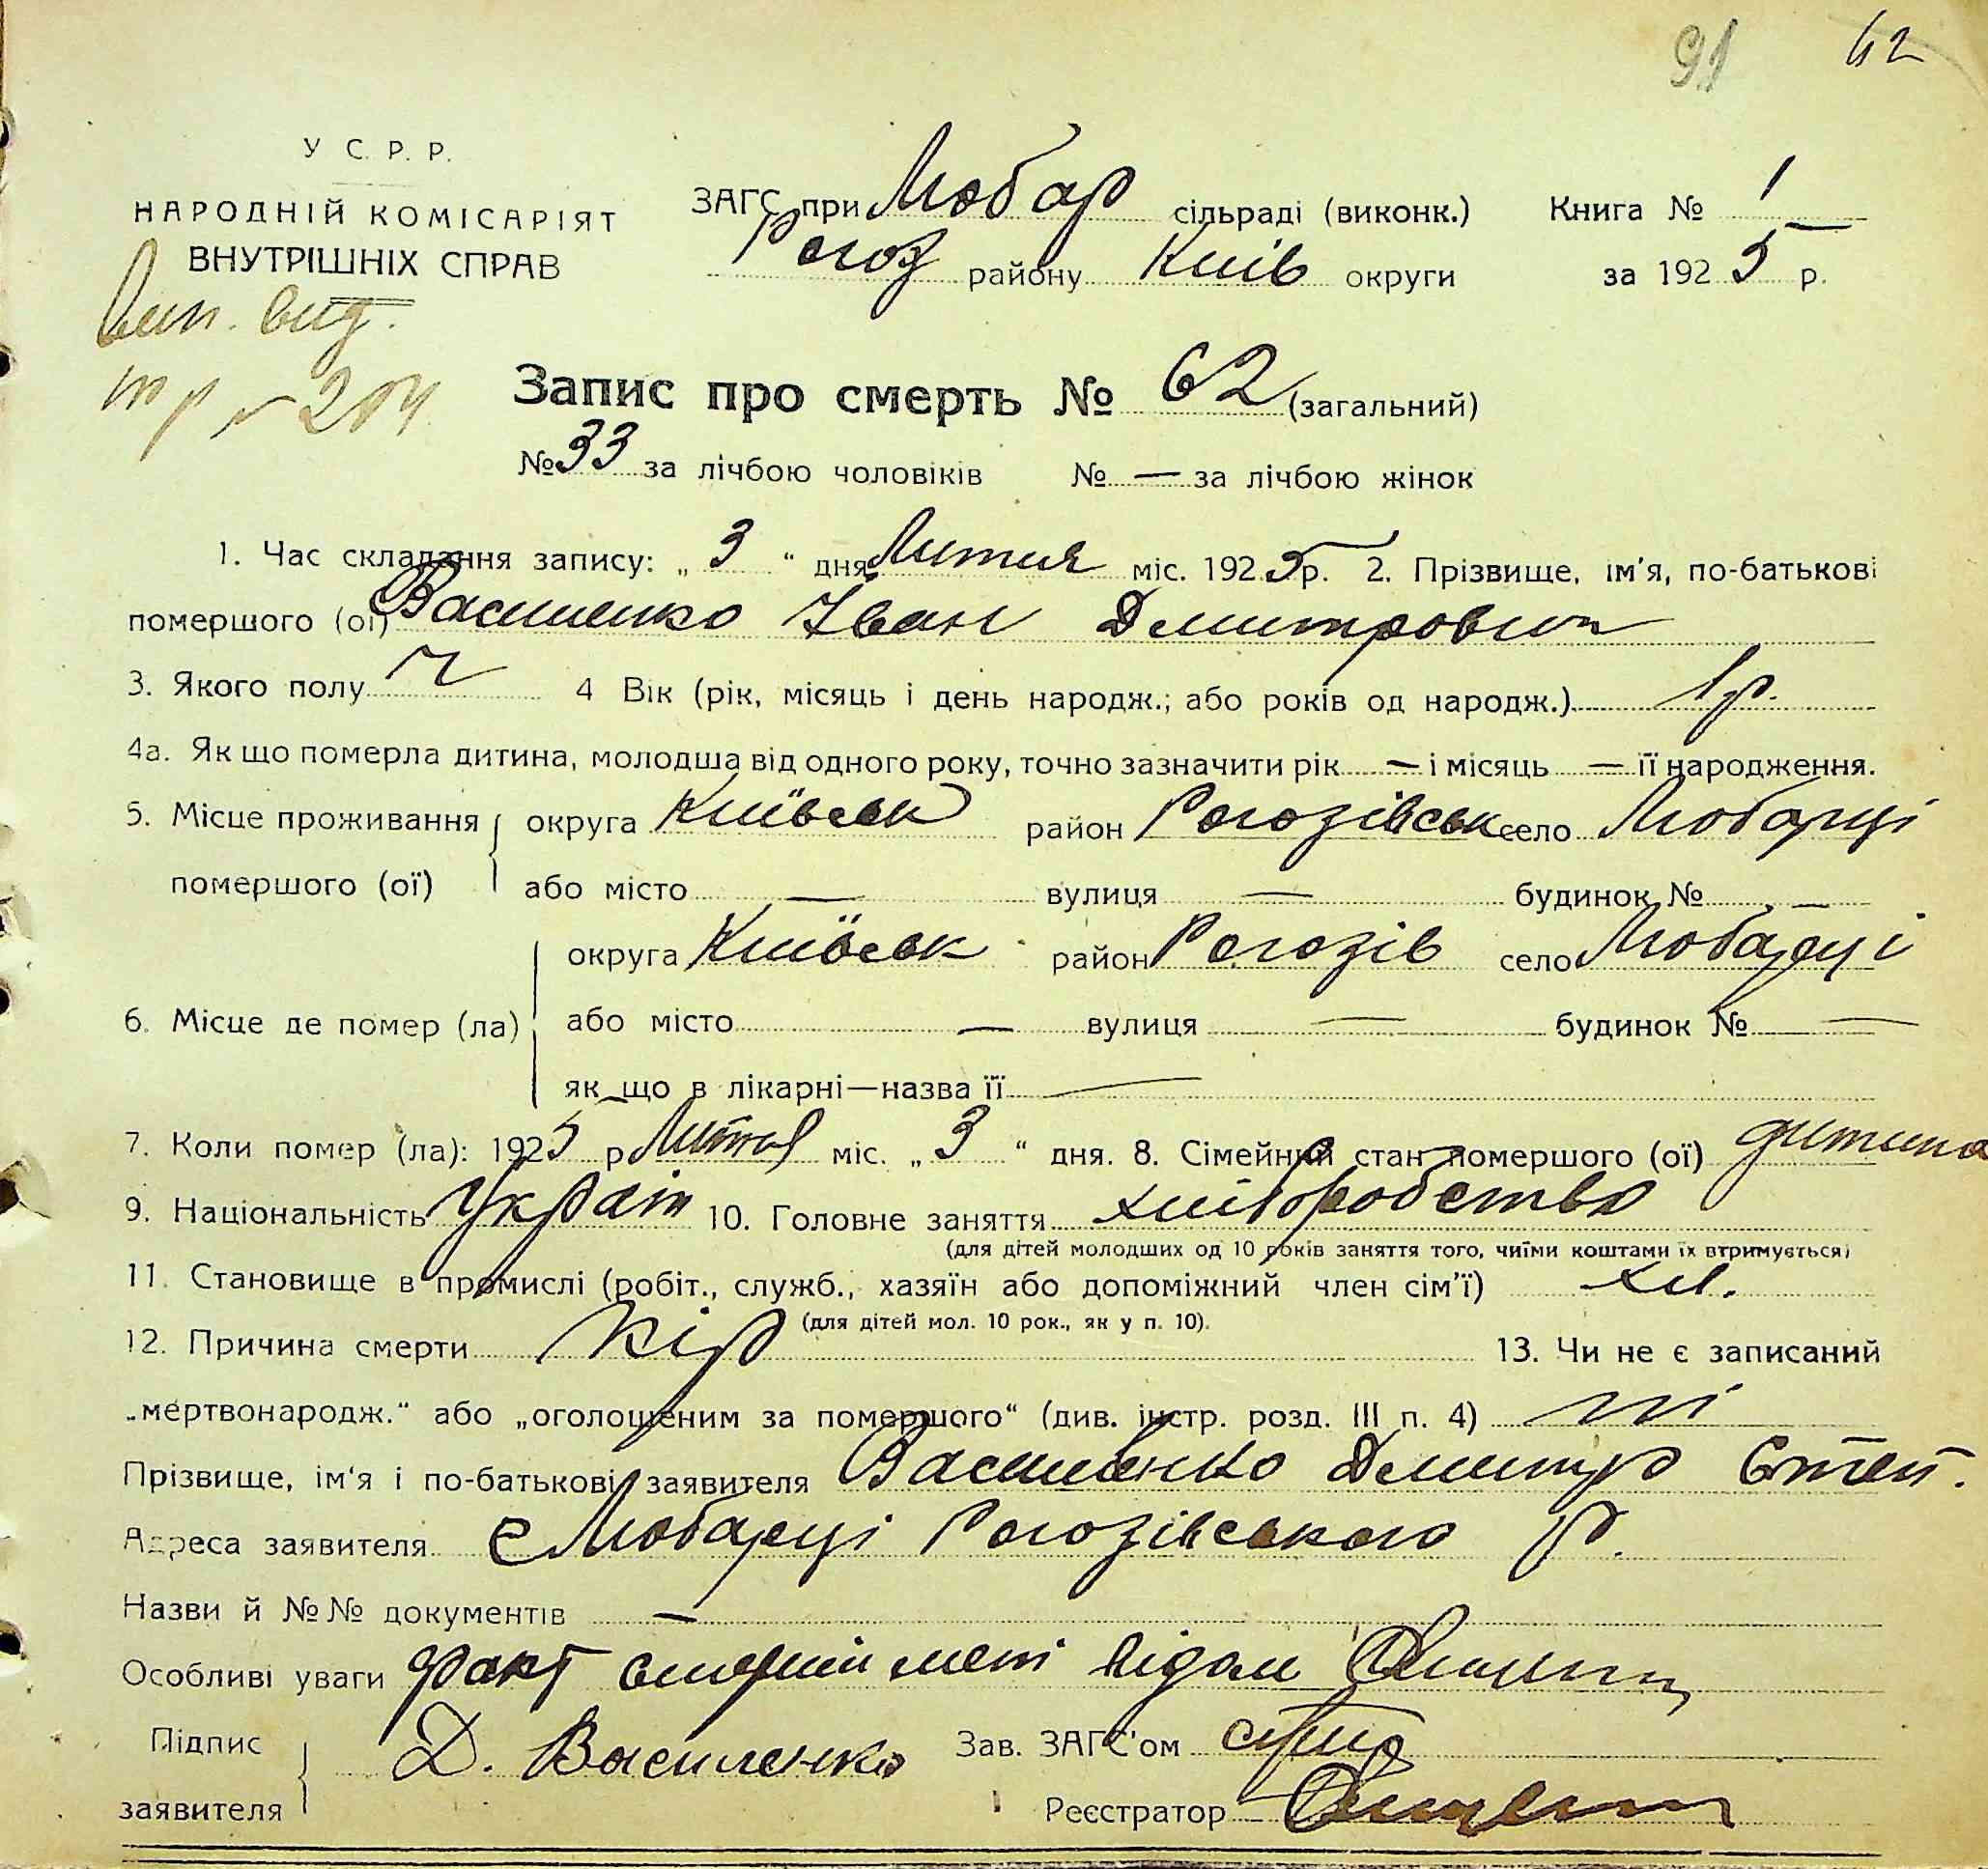 91 62
У С. Р. Р.
НАРОДНІЙ КОМІСАРІЯТ
ВНУТРІШНІХ СПРАВ
ЗАГС при Любар сільраді (виконк.) Книга № 1
Рогоз району Київ округи за 1925 р.
вип. вид.
204
Запис про смерть № 62 (загальний)
№ 33 за лічбою чоловіків № — за лічбою жінок
1. Час складання запису: „ 3 “ дня Лютня міс. 1925 р. 2. Прізвище, ім'я, по-батькові
помершого (ої) Василенко Іван Дмитрович
3. Якого полу ч 4 Вік (рік, місяць і день народж.; або років од народж.) 1 р.
4а. Як що померла дитина, молодша від одного року, точно зазначити рік — і місяць — її народження.
5. Місце проживання округа Київськ район Рогозівськ село Любарці
помершого (ої) або місто — вулиця — будинок № —
округа Київськ район Рогозів село Любарці
6. Місце де помер (ла) або місто — вулиця — будинок № —
як що в лікарні—назва її —
7. Коли помер (ла): 1925 р Лютня міс. „ 3 “ дня. 8. Сімейний стан помершого (ої) дитина
9. Національність Україн 10. Головне заняття хліборобство
(для дітей молодших од 10 років заняття того, чиїми коштами їх втримується)
11. Становище в промислі (робіт., служб., хазяїн або допоміжний член сім'ї) хл.
(для дітей мол. 10 рок., як у п. 10).
12. Причина смерти Кір 13. Чи не є записаний
„мертвонародж.“ або „оголошеним за помершого“ (див. інстр. розд. III п. 4) ні
Прізвище, ім'я і по-батькові заявителя Василенко Дмитро Степ.
Адреса заявителя с Любарці Рогозівського р.
Назви й №№ документів —
Особливі уваги Факт смерти мені відом
Підпис
заявителя
Д. Василенко
Зав. ЗАГС'ом
Реєстратор